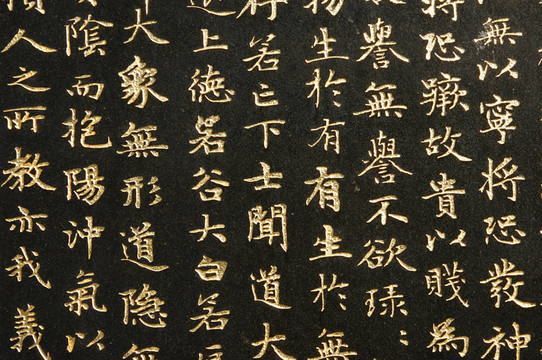 無以寧將恐發神
將恐蹶故貴以賤為
譽無譽不欲琭〻
生於有有生於無
存若亡下士聞道大
上德若谷大白若
大象無形道隐無
陰而抱陽沖氣以
人之所教亦我義